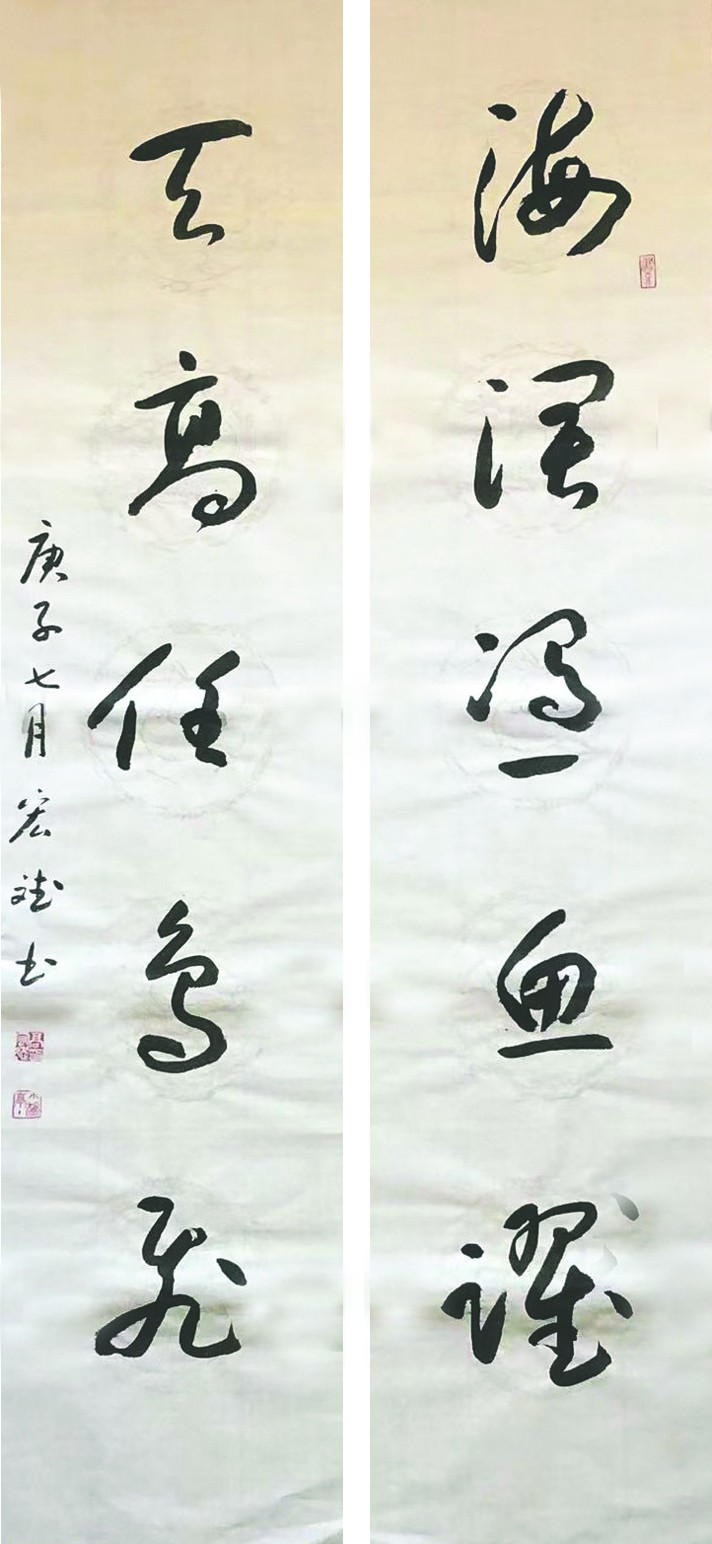 海阔凭鱼躍
天高任鸟飛
庚子七月宏斌书